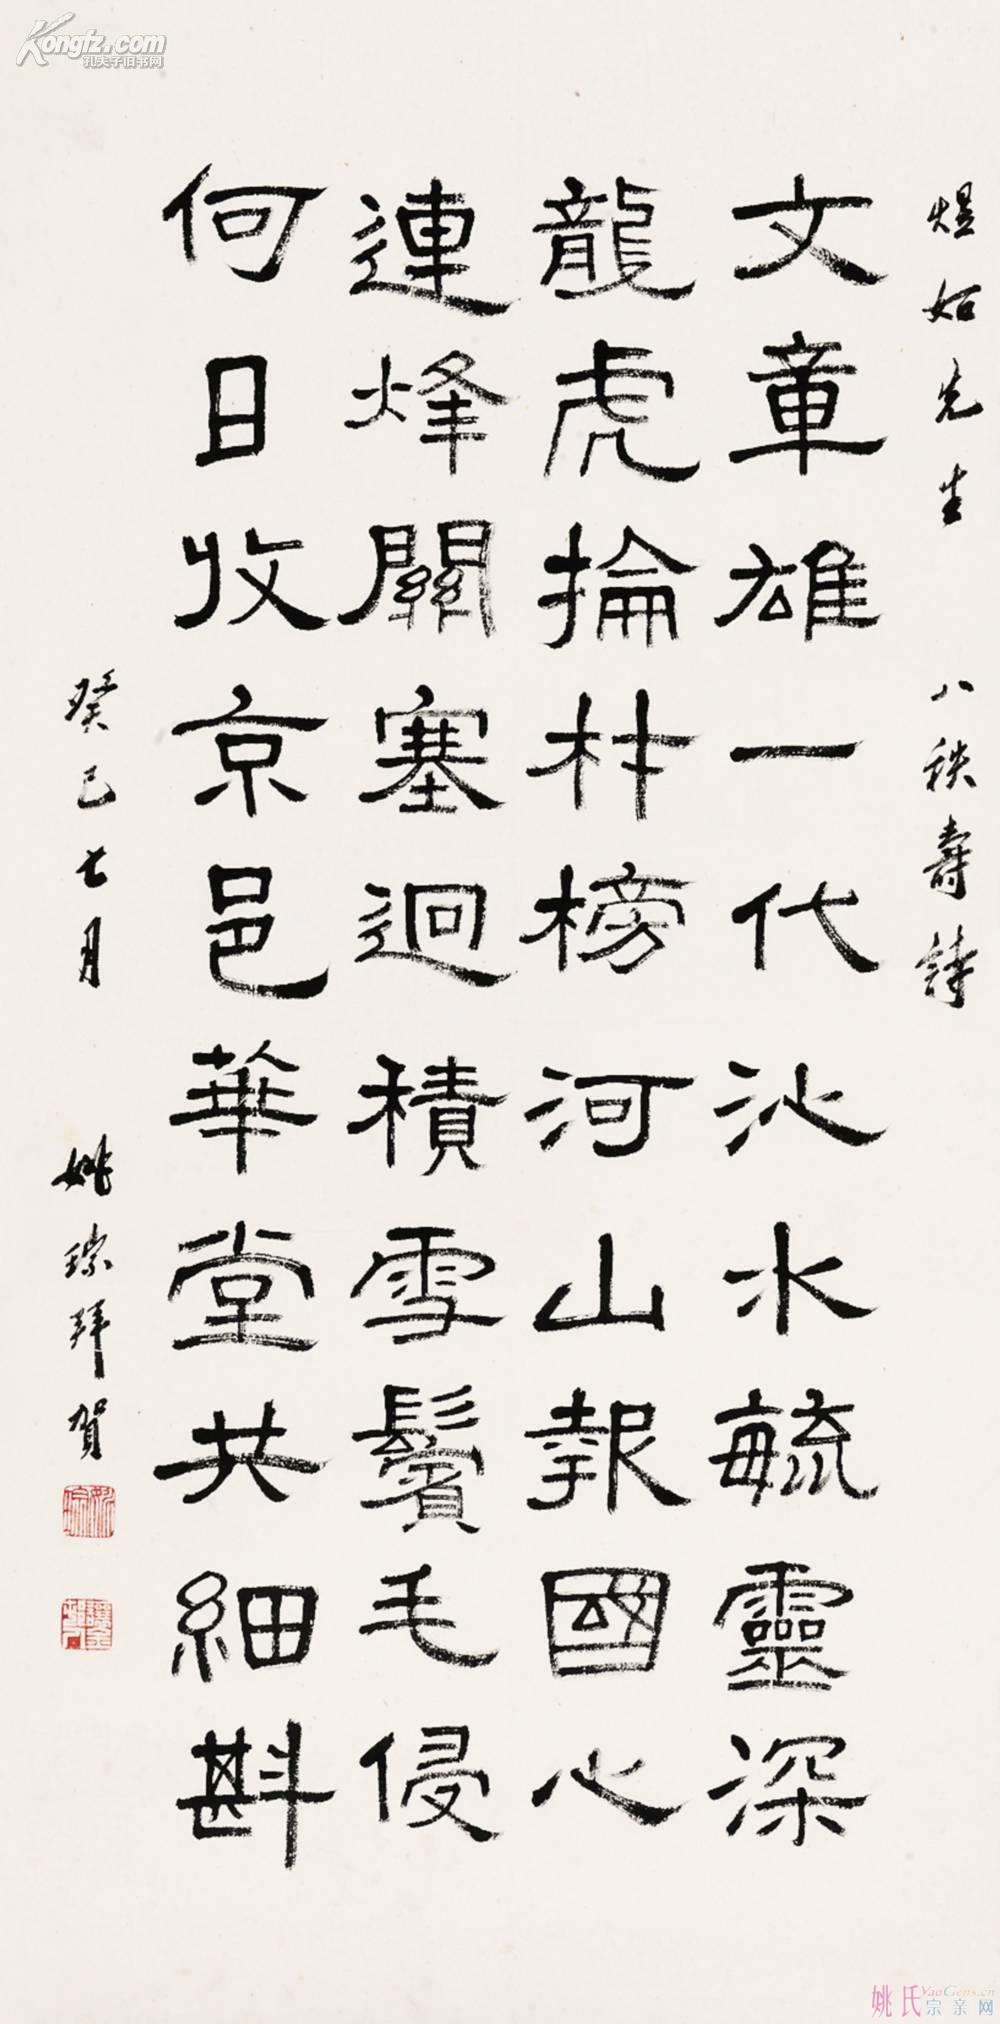 Kongfz.com
孔夫子旧书网
煜如先生 八秩壽詩
文章雄一代沁水毓靈深
龍虎掄材榜河山報國心
連烽關塞迥積雪鬢毛侵
何日收京邑華堂共細斟
癸巳七月 姚琮拜賀
姚氏宗亲网
YaoGens.cn